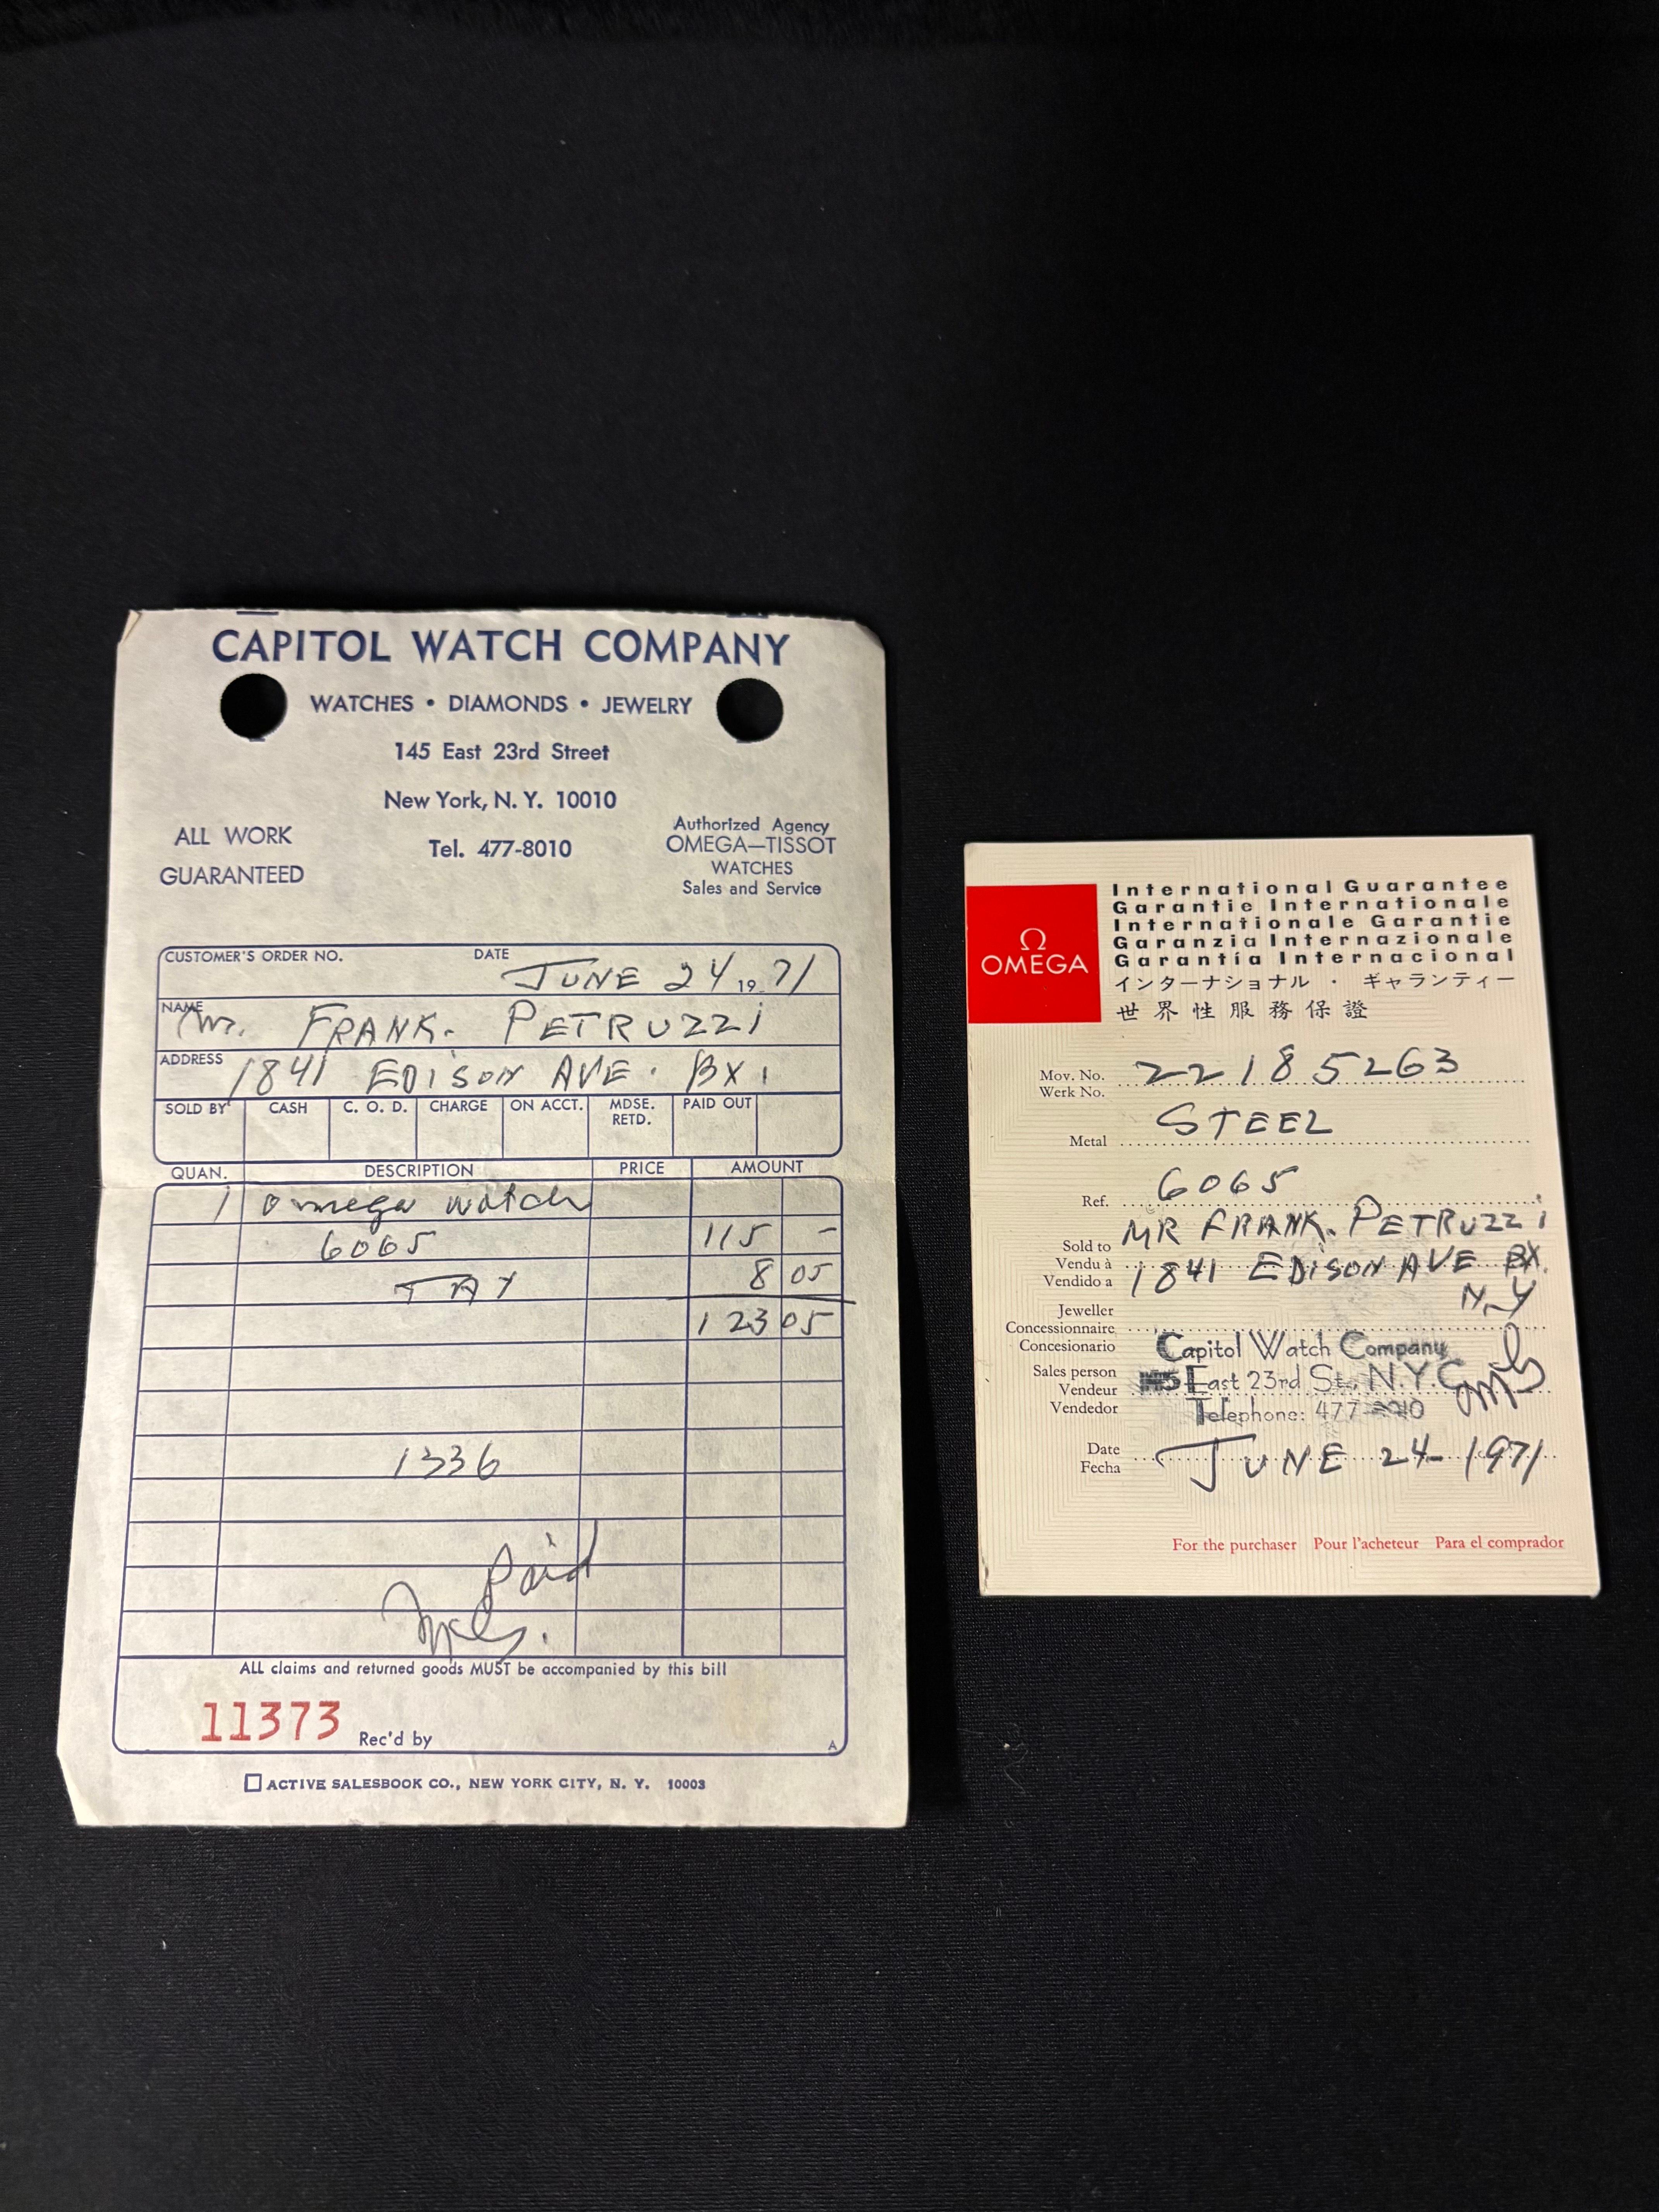 CAPITOL WATCH COMPANY
WATCHES • DIAMONDS • JEWELRY
145 East 23rd Street
New York, N. Y. 10010
Tel. 477-8010
ALL WORK
GUARANTEED
Authorized Agency
OMEGA—TISSOT
WATCHES
Sales and Service
CUSTOMER'S ORDER NO. DATE JUNE 24 1971
NAME Mr. FRANK. PETRUZZI
ADDRESS 1841 EDISON AVE. BX.
SOLD BY CASH C. O. D. CHARGE ON ACCT. MDSE. RETD. PAID OUT
QUAN. DESCRIPTION PRICE AMOUNT
1 omega watch
6065 115 -
TAX 8 05
123 05
1336
Paid
ALL claims and returned goods MUST be accompanied by this bill
11373 Rec'd by
A
ACTIVE SALESBOOK CO., NEW YORK CITY, N. Y. 10003
Ω
OMEGA
International Guarantee
Garantie Internationale
Internationale Garantie
Garanzia Internazionale
Garantía Internacional
インターナショナル ・ ギャランティー
世界性服務保證
Mov. No. 22185263
Werk No.
Metal STEEL
Ref. 6065
MR FRANK. PETRUZZI
Sold to
Vendu à
Vendido a
1841 EDISON AVE BX.
N.Y
Jeweller
Concessionnaire
Concesionario
Capitol Watch Company
Sales person
Vendeur
Vendedor
145 East 23rd St., N.Y.C
Telephone: 477
Date
Fecha
JUNE 24-1971
For the purchaser Pour l'acheteur Para el comprador